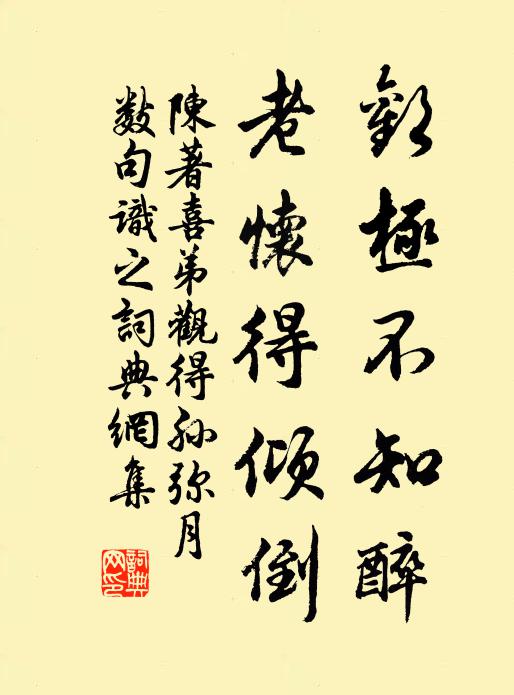 歡極不知醉
老懷得傾倒
陳著喜弟觀得孙弥月
数句識之詞典網集
詞典網印